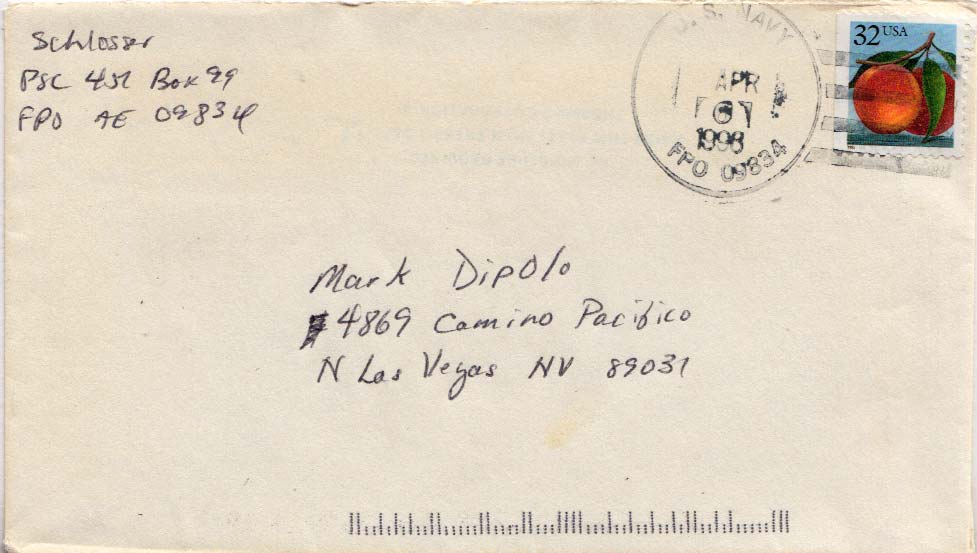 Schlosser
PSC 451 Box 99
FPO AE 09834
U.S. NAVY
APR
6
1998
FPO 09834
32 USA
Mark Dipolo
4869 Camino Pacifico
N Las Vegas NV 89031